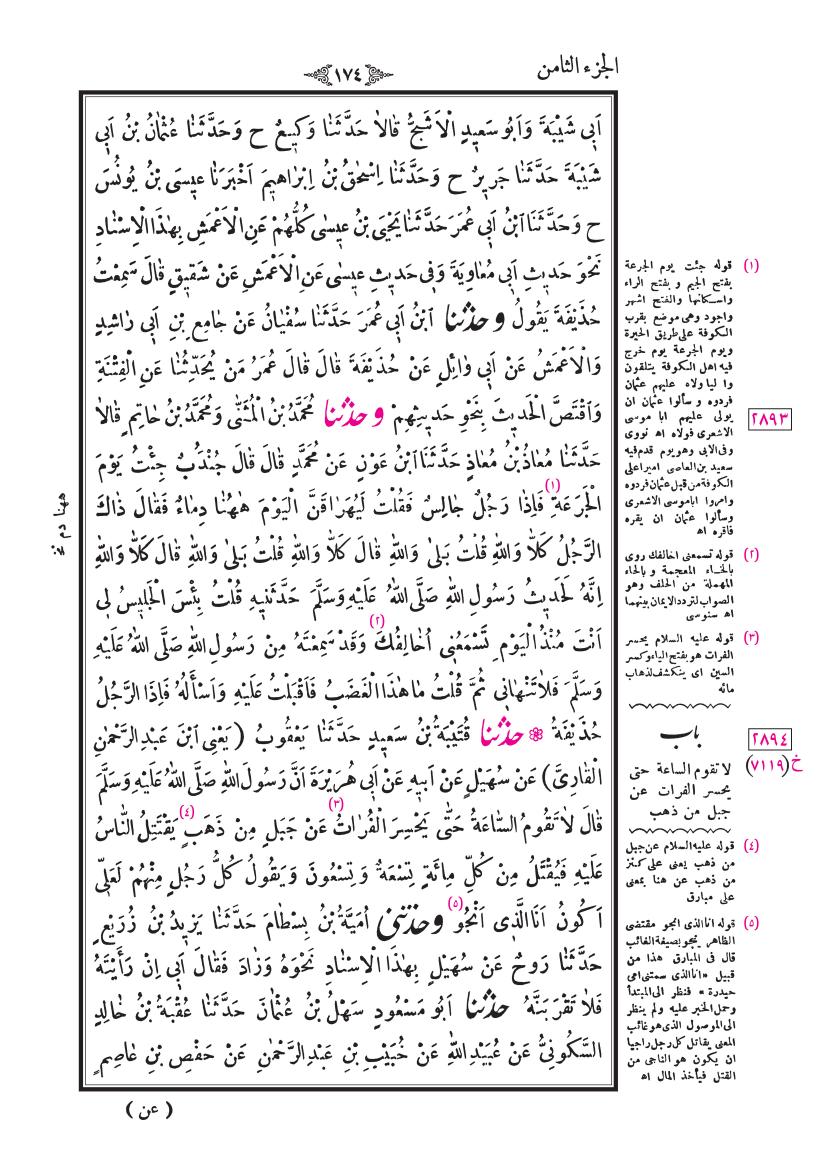 الجزء الثامن
١٧٤
اَبِى شَيْبَةَ وَاَبُو سَعِيدٍ الْاَشَجُّ قَالَا حَدَّثَنَا وَكِيعٌ ح وَحَدَّثَنَا عُثْمَانُ بْنُ اَبِى
شَيْبَةَ حَدَّثَنَا جَرِيرٌ ح وَحَدَّثَنَا اِسْحٰقُ بْنُ اِبْرَاهِيمَ اَخْبَرَنَا عِيسَى بْنُ يُونُسَ
ح وَحَدَّثَنَا ابْنُ اَبِى عُمَرَ حَدَّثَنَا يَحْيَى بْنُ عِيسٰى كُلُّهُمْ عَنِ الْاَعْمَشِ بِهٰذَا الْاِسْنَادِ
نَحْوَ حَدِيثِ اَبِى مُعَاوِيَةَ وَفِى حَدِيثِ عِيسٰى عَنِ الْاَعْمَشِ عَنْ شَقِيقٍ قَالَ سَمِعْتُ
حُذَيْفَةَ يَقُولُ وحدثنا ابْنُ اَبِى عُمَرَ حَدَّثَنَا سُفْيَانُ عَنْ جَامِعِ بْنِ اَبِى رَاشِدٍ
وَالْاَعْمَشُ عَنْ اَبِى وَائِلٍ عَنْ حُذَيْفَةَ قَالَ قَالَ عُمَرُ مَنْ يُحَدِّثُنَا عَنِ الْفِتْنَةِ
وَاقْتَصَّ الْحَدِيثَ بِنَحْوِ حَدِيثِهِمْ وحدثنا مُحَمَّدُ بْنُ الْمُثَنّٰى وَمُحَمَّدُ بْنُ حَاتِمٍ قَالَا
حَدَّثَنَا مُعَاذُ بْنُ مُعَاذٍ حَدَّثَنَا ابْنُ عَوْنٍ عَنْ مُحَمَّدٍ قَالَ قَالَ جُنْدَبٌ جِئْتُ يَوْمَ
الْجَرَعَةِ (١) فَاِذَا رَجُلٌ جَالِسٌ فَقُلْتُ لَيُهْرَاقَنَّ الْيَوْمَ هٰهُنَا دِمَاءٌ فَقَالَ ذَاكَ
الرَّجُلُ كَلَّا وَاللهِ قُلْتُ بَلٰى وَاللهِ قَالَ كَلَّا وَاللهِ قُلْتُ بَلٰى وَاللهِ قَالَ كَلَّا وَاللهِ
اِنَّهُ لَحَدِيثُ رَسُولِ اللهِ صَلَّى اللهُ عَلَيْهِ وَسَلَّمَ حَدَّثَنِيهِ قُلْتُ بِئْسَ الْجَلِيسُ لِى
اَنْتَ مُنْذُ الْيَوْمِ تَسْمَعُنِى اُخَالِفُكَ (٢) وَقَدْ سَمِعْتَهُ مِنْ رَسُولِ اللهِ صَلَّى اللهُ عَلَيْهِ
وَسَلَّمَ فَلَا تَنْهَانِى ثُمَّ قُلْتُ مَا هٰذَا الْغَضَبُ فَاَقْبَلْتُ عَلَيْهِ وَاَسْأَلُهُ فَاِذَا الرَّجُلُ
حُذَيْفَةُ ❁ حدثنا قُتَيْبَةُ بْنُ سَعِيدٍ حَدَّثَنَا يَعْقُوبُ (يَعْنِى ابْنَ عَبْدِ الرَّحْمٰنِ
الْقَارِىَّ) عَنْ سُهَيْلٍ عَنْ اَبِيهِ عَنْ اَبِى هُرَيْرَةَ اَنَّ رَسُولَ اللهِ صَلَّى اللهُ عَلَيْهِ وَسَلَّمَ
قَالَ لَا تَقُومُ السَّاعَةُ حَتّٰى يَحْسِرَ الْفُرَاتُ (٣) عَنْ جَبَلٍ مِنْ ذَهَبٍ (٤) يَقْتَتِلُ النَّاسُ
عَلَيْهِ فَيُقْتَلُ مِنْ كُلِّ مِائَةٍ تِسْعَةٌ وَتِسْعُونَ وَيَقُولُ كُلُّ رَجُلٍ مِنْهُمْ لَعَلِّى
اَكُونُ اَنَا الَّذِى اَنْجُو (٥) وحدثنى اُمَيَّةُ بْنُ بِسْطَامَ حَدَّثَنَا يَزِيدُ بْنُ زُرَيْعٍ
حَدَّثَنَا رَوْحٌ عَنْ سُهَيْلٍ بِهٰذَا الْاِسْنَادِ نَحْوَهُ وَزَادَ فَقَالَ اَبِى اِنْ رَأَيْتَهُ
فَلَا تَقْرَبَنَّهُ حدثنا اَبُو مَسْعُودٍ سَهْلُ بْنُ عُثْمَانَ حَدَّثَنَا عُقْبَةُ بْنُ خَالِدٍ
السَّكُونِىُّ عَنْ عُبَيْدِ اللهِ عَنْ خُبَيْبِ بْنِ عَبْدِ الرَّحْمٰنِ عَنْ حَفْصِ بْنِ عَاصِمٍ
( عن )
ههنا دم نخ
(١) قوله جئت يوم الجرعة
بفتح الجيم و بفتح الراء
واسكانها والفتح اشهر
واجود وهى موضع بقرب
الكوفة على طريق الحيرة
ويوم الجرعة يوم خرج
فيه اهل الكوفة يتلقون
واليا ولاه عليهم عثمان
فردوه وسألوا عثمان ان
يولى عليهم ابا موسى
الاشعرى فولاه اه نووى
وفى الابى وهو يوم قدم فيه
سعيد بن العاصى اميرا على
الكوفة من قبل عثمان فردوه
وامروا ابا موسى الاشعرى
وسألوا عثمان ان يقره
فاقره اه
٢٨٩٣
(٢) قوله تسمعنى اخالفك روى
بالخاء المعجمة وبالحاء
المهملة من الحلف وهو
الصواب لتردد الايمان بينهما
اه سنوسى
(٣) قوله عليه السلام يحسر
الفرات هو بفتح الياء وكسر
السين اى ينكشف لذهاب
مائه
باب
٢٨٩٤
خ(٧١١٩)
لا تقوم الساعة حتى
يحسر الفرات عن
جبل من ذهب
(٤) قوله عليه السلام عن جبل
من ذهب يعنى على كنز
من ذهب عن هنا بمعنى
على مبارق
(٥) قوله انا الذى انجو مقتضى
الظاهر ينجو بصيغة الغائب
قال فى المبارق هذا من
قبيل «انا الذى سمتنى امى
حيدرة» فنظر الى المبتدأ
وحمل الخبر عليه ولم ينظر
الى الموصول الذى هو غائب
المعنى يقاتل كل رجل راجيا
ان يكون هو الناجى من
القتل فيأخذ المال اه